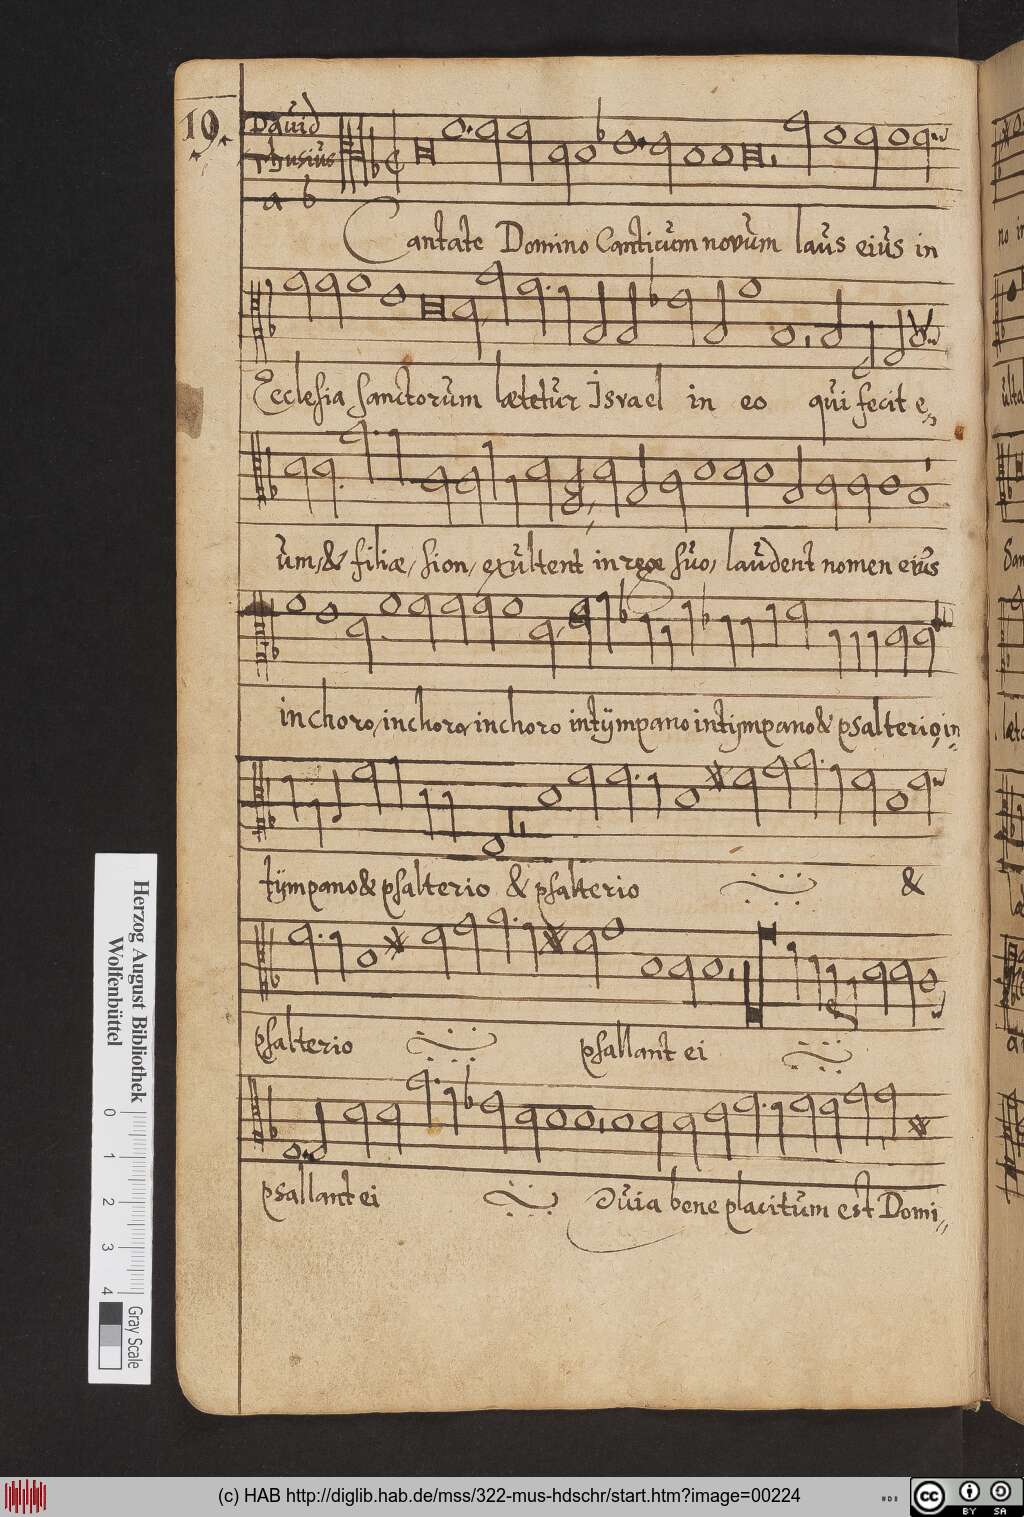 19.
David
Thusius
a 6
Cantate Domino Canticum novum laus eius in
Ecclesia sanctorum lætetur Israel in eo qui fecit e,,
um, & filiæ, sion, exultent in rege suo, laudent nomen eius
in choro, in choro, in choro in tÿmpano in tÿmpano & psalterio, in
tÿmpano & psalterio & psalterio &
psalterio psallant ei
psallant ei Quia bene placitum est Domi,,
Herzog August Bibliothek
Wolfenbüttel
0 1 2 3 4
Gray Scale
(c) HAB http://diglib.hab.de/mss/322-mus-hdschr/start.htm?image=00224
cc BY SA